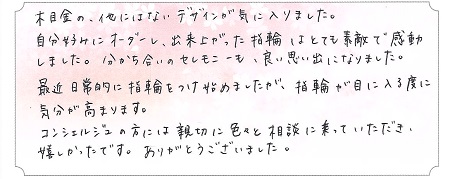 木目金の、他にはないデザインが気に入りました。
自分好みにオーダーし、出来上がった指輪はとても素敵で感動
しました。分かち合いのセレモニーも、良い思い出になりました。
最近日常的に指輪をつけ始めましたが、指輪が目に入る度に
気分が高まります。
コンシェルジュの方には親切に色々と相談に乗っていただき、
嬉しかったです。ありがとうございました。